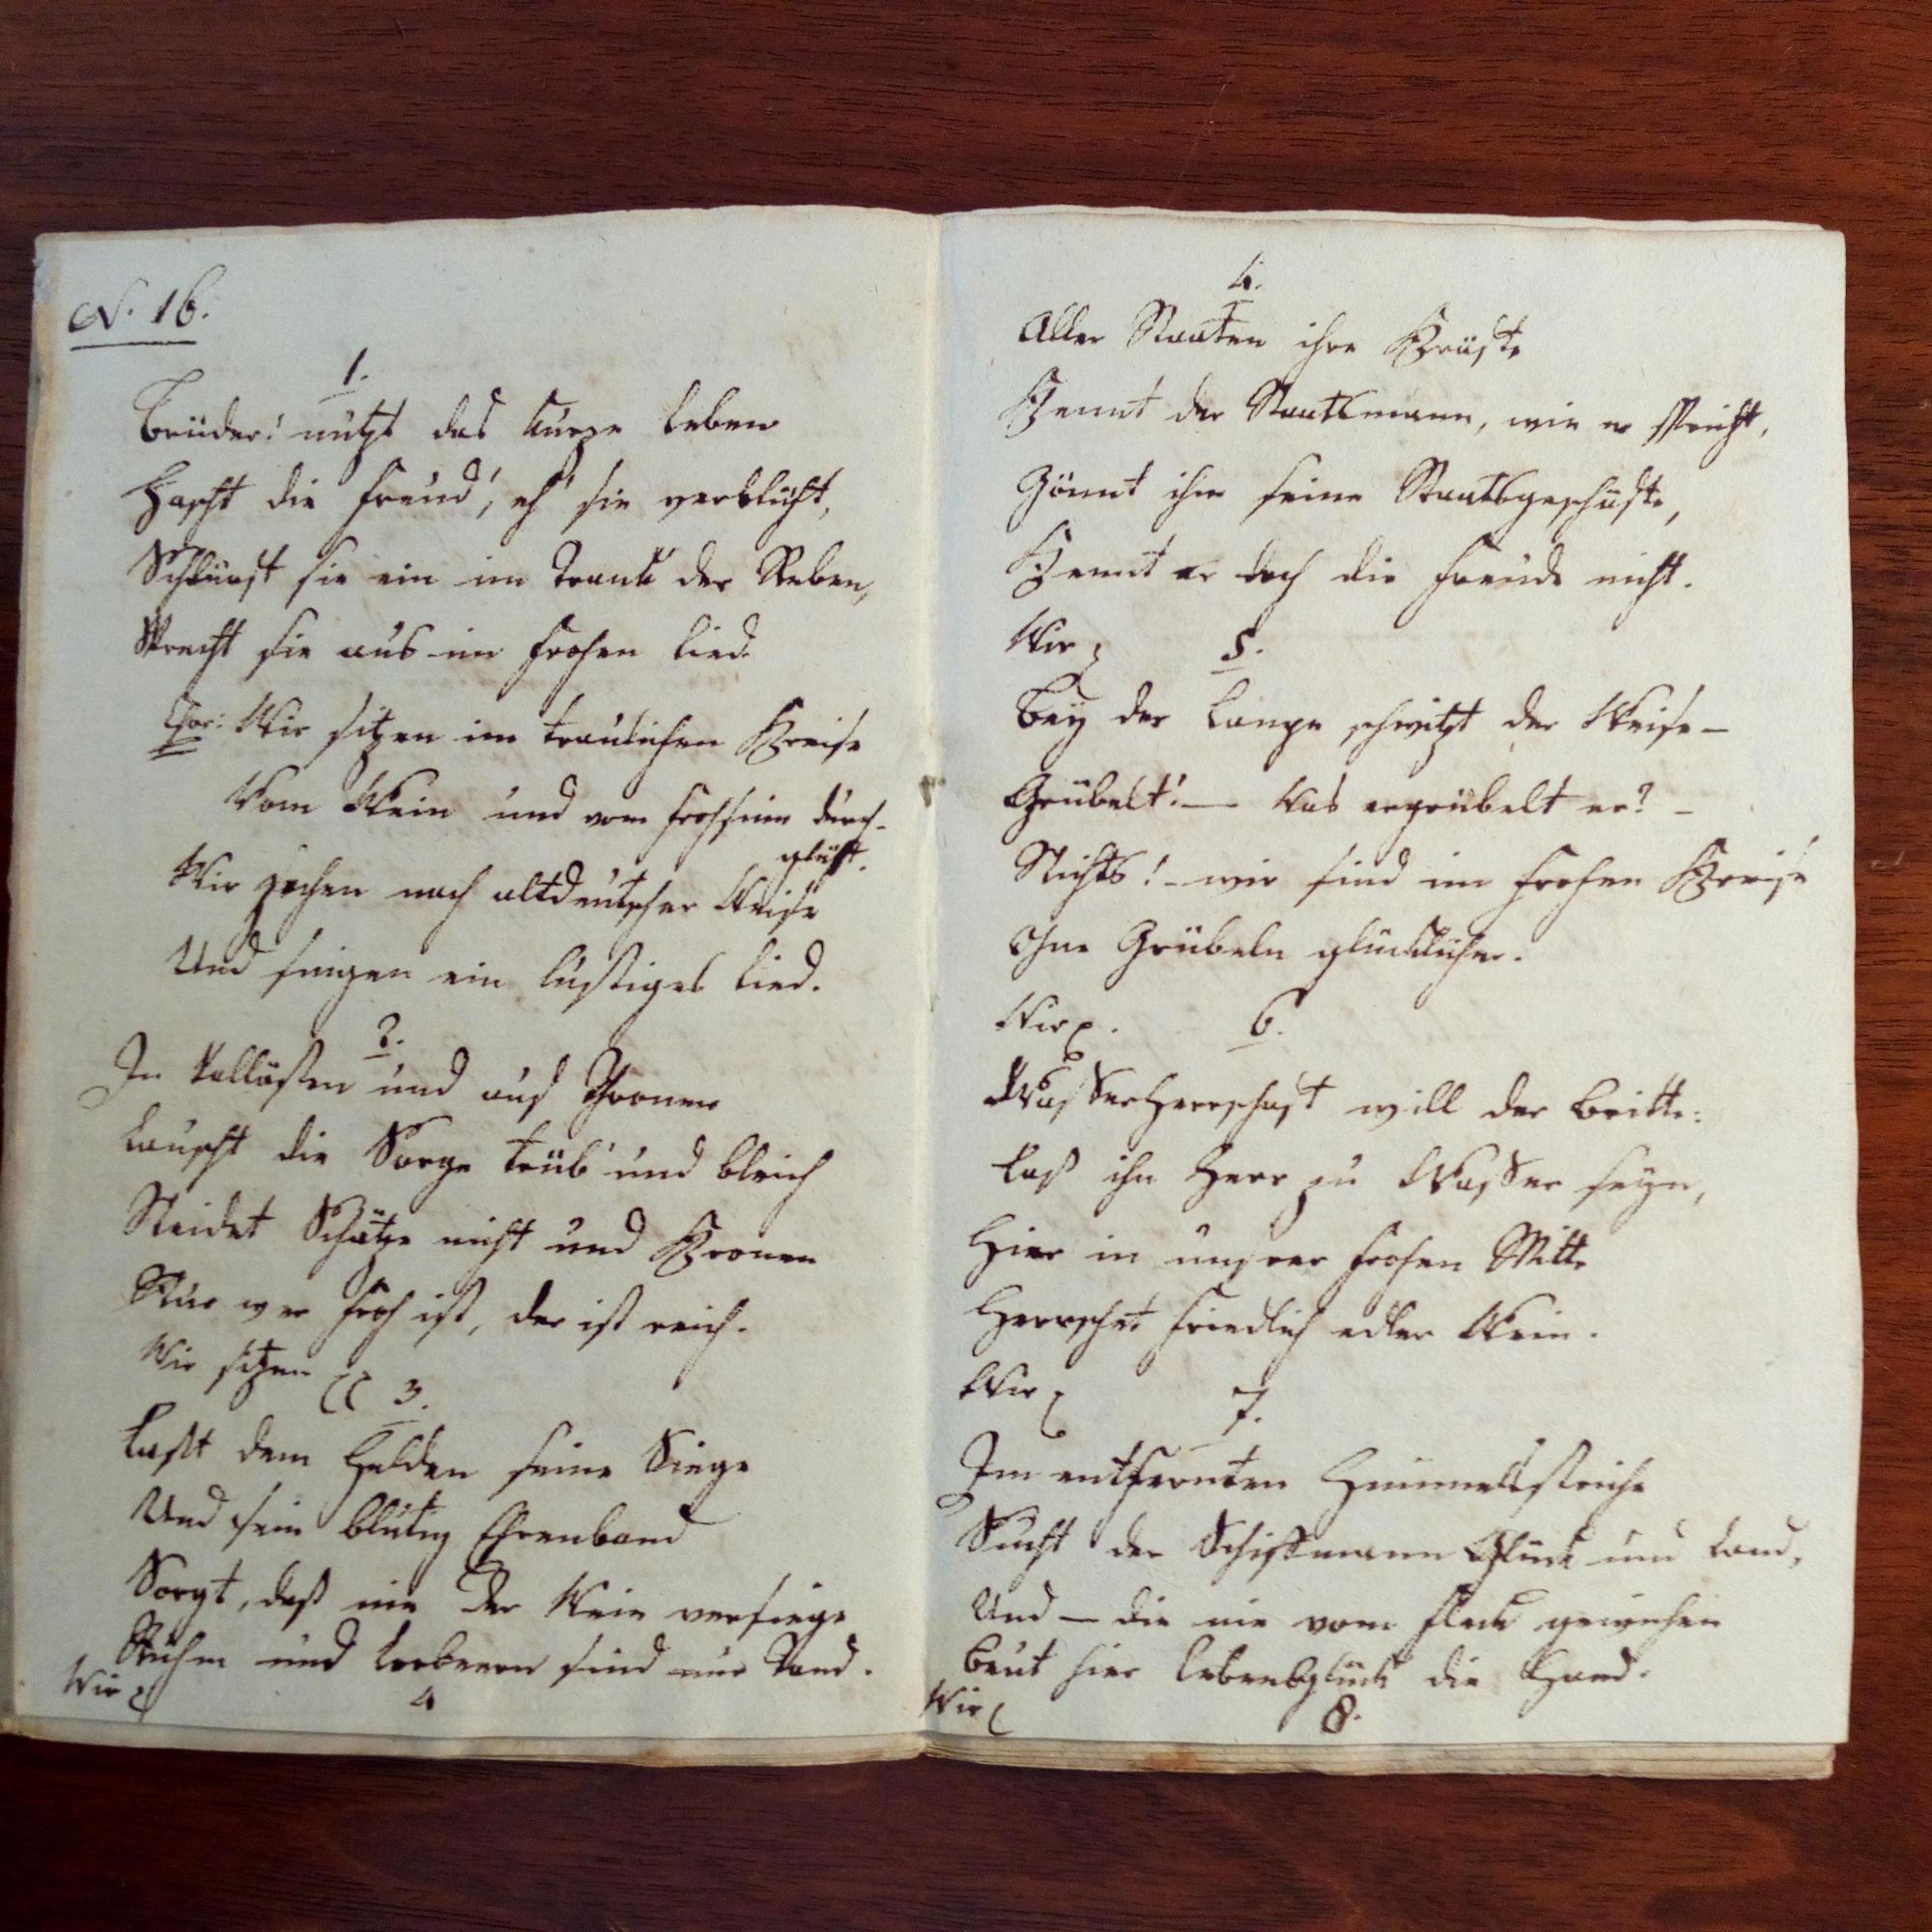 N. 16.
1.
Brüder! nützt das kurze Leben
Hascht die Freud', eh' sie verblüht,
Schlürft sie ein im Trank der Reben,
Sprecht sie aus im frohen Lied.
Chor: Wir sitzen im traulichen Kreise
Vom Wein und vom Frohsinn durch-
glüht.
Wir zechen nach altdeutscher Weise
Und singen ein lustiges Lied.
2.
In Pallästen und auf Thronen
Lauscht die Sorge trüb' und bleich
Neidet Schätze nicht und Kronen
Nur wer froh ist, der ist reich.
Wir sitzen
3.
Laßt dem Helden seine Siege
Und sein blutig Ehrenband
Sorgt, daß nie der Wein versiege
Ruhm und Lorbeern sind nur Tand.
Wir
4
4.
Aller Staaten ihre Kräfte
Kennt der Staatsmann, wie er spricht,
Gönnt ihm seine Staatsgeschäfte,
Kennt er doch die Freude nicht.
Wir
5.
Bey der Lampe schwitzt der Weise –
Grübelt! – Was ergrübelt er? –
Nichts! – wir sind im frohen Kreise
Ohne Grübeln glücklicher.
Wir
6.
Wasserherrschaft will der Britte:
Laß ihn Herr zu Wasser seyn,
Hier in unsrer frohen Mitte
Herrschet friedlich edler Wein.
Wir
7.
Im entfernten Himmelsstriche
Sucht der Schiffmann Glück und Land,
Und – die nie vom Fleck gewichen
Beut hier Lebensglück die Hand.
Wir
8.